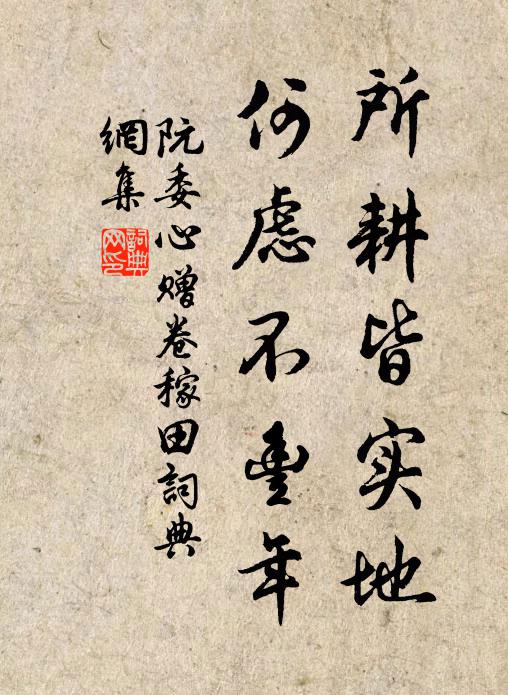 所耕皆实地
何虑不豊年
阮委心赠卷稼田詞典
網集
詞典
网印